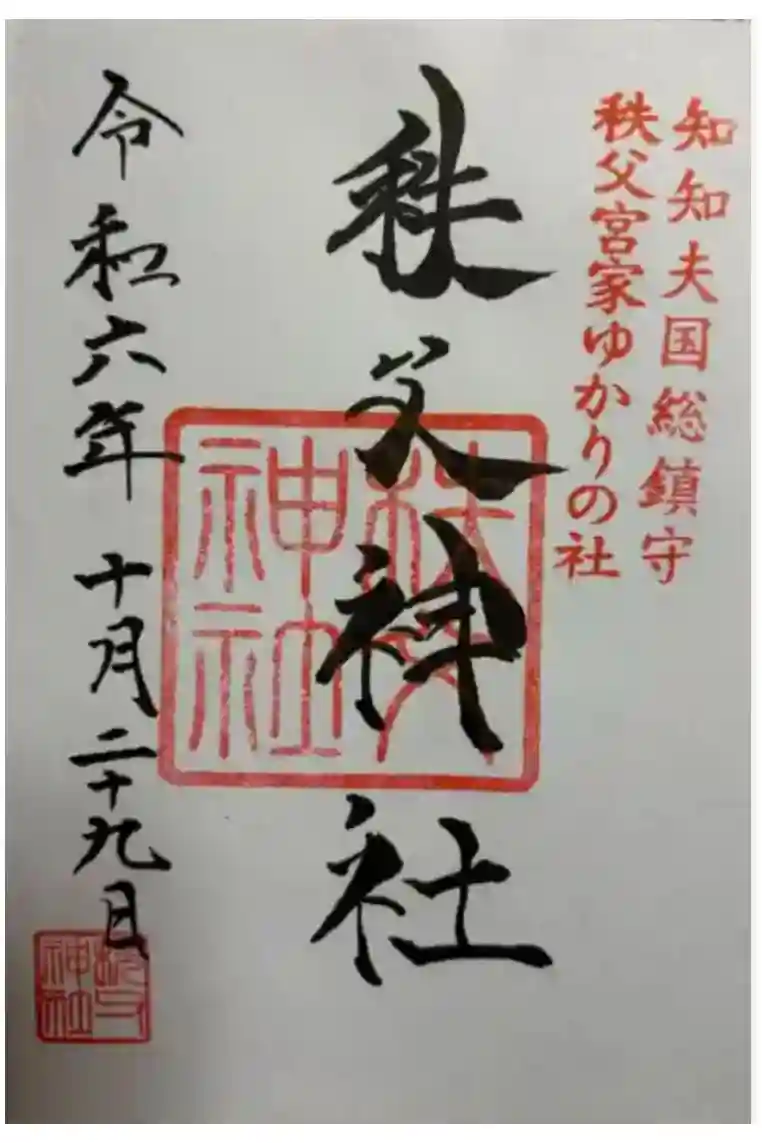 知知夫国総鎮守
秩父宮家ゆかりの社
秩父神社
秩父神社
令和六年 十月二十九日
神社